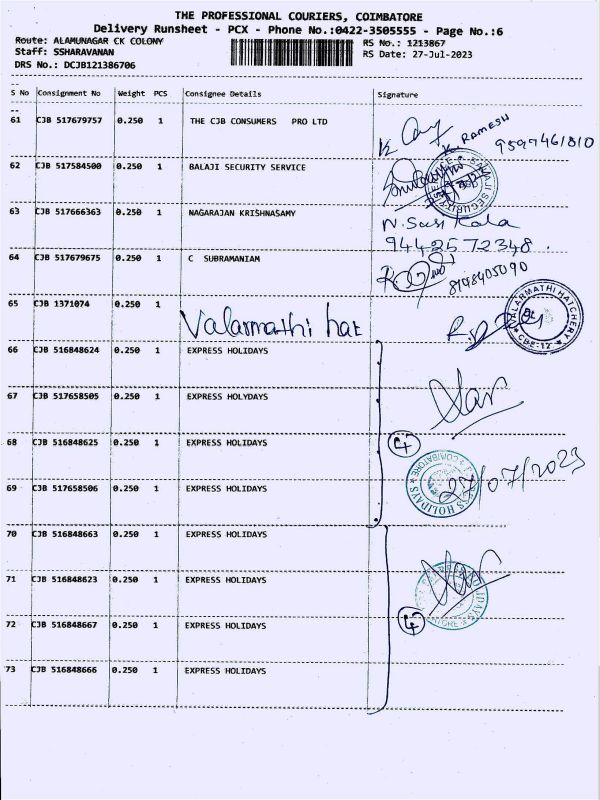 THE PROFESSIONAL COURIERS, COIMBATORE
Delivery Runsheet - PCX - Phone No.:0422-3505555 - Page No.:6
Route: ALAMUNAGAR CK COLONY
RS No.: 1213867
Staff: SSHARAVANAN
RS Date: 27-Jul-2023
DRS No.: DCJB121386706
S No Consignment No Weight PCS Consignee Details Signature
61 CJB 517679757 0.250 1 THE CJB CONSUMERS PVO LTD
K. RAMESH
9597461810
62 CJB 517584500 0.250 1 BALAJI SECURITY SERVICE
63 CJB 517666363 0.250 1 NAGARAJAN KRISHNASAMY
N. Sasi Kala
9442572348.
64 CJB 517679675 0.250 1 C SUBRAMANIAM
8148405090
65 CJB 1371074 0.250 1 Valarmathi hat
VALARMATHI HATCHERY
CBE-12
66 CJB 516848624 0.250 1 EXPRESS HOLIDAYS
67 CJB 517658505 0.250 1 EXPRESS HOLYDAYS
68 CJB 516848625 0.250 1 EXPRESS HOLIDAYS
4
69 CJB 517658506 0.250 1 EXPRESS HOLIDAYS
27/07/2023
70 CJB 516848663 0.250 1 EXPRESS HOLIDAYS
71 CJB 516848623 0.250 1 EXPRESS HOLIDAYS
72 CJB 516848667 0.250 1 EXPRESS HOLIDAYS
4
73 CJB 516848666 0.250 1 EXPRESS HOLIDAYS